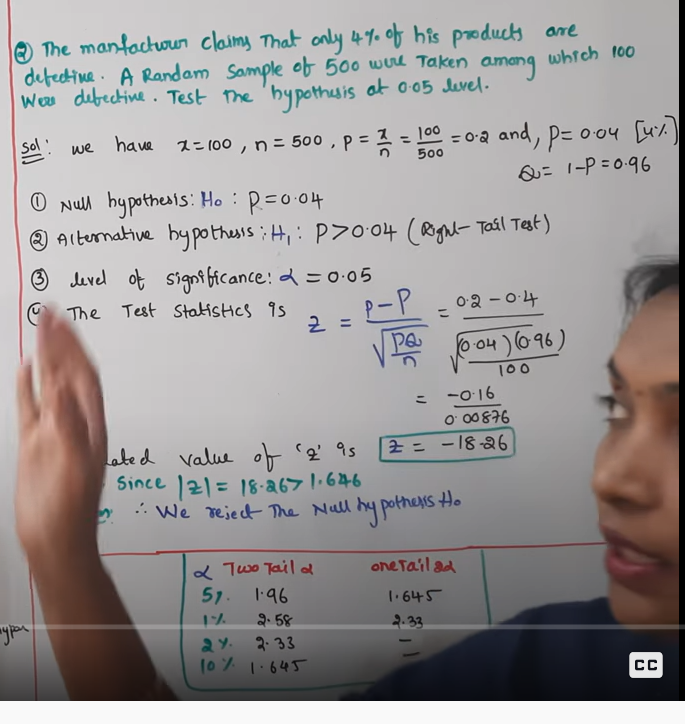 ② The manfacturer claims That only 4% of his products are
defective. A Random Sample of 500 were Taken among which 100
Were defective. Test The hypothesis at 0.05 level.
Sol: we have x=100, n=500, p = x/n = 100/500 = 0.2 and, P=0.04 [4%]
Q = 1-P = 0.96
① Null hypothesis: H₀ : P=0.04
② Alternative hypothesis: H₁: P>0.04 (Right-Tail Test)
③ level of significance: α = 0.05
The Test Statistics is z = (p-P)/√(PQ/n) = (0.2-0.4)/√((0.04)(0.96)/100)
= -0.16/0.00876
ated value of 'z' is z = -18.26
Since |z| = 18.26 > 1.646
∴ We reject The Null hypothesis H₀
α Two Tail α one Tail 2α
5%. 1.96 1.645
1% 2.58 2.33
2% 2.33 –
10% 1.645 –
CC